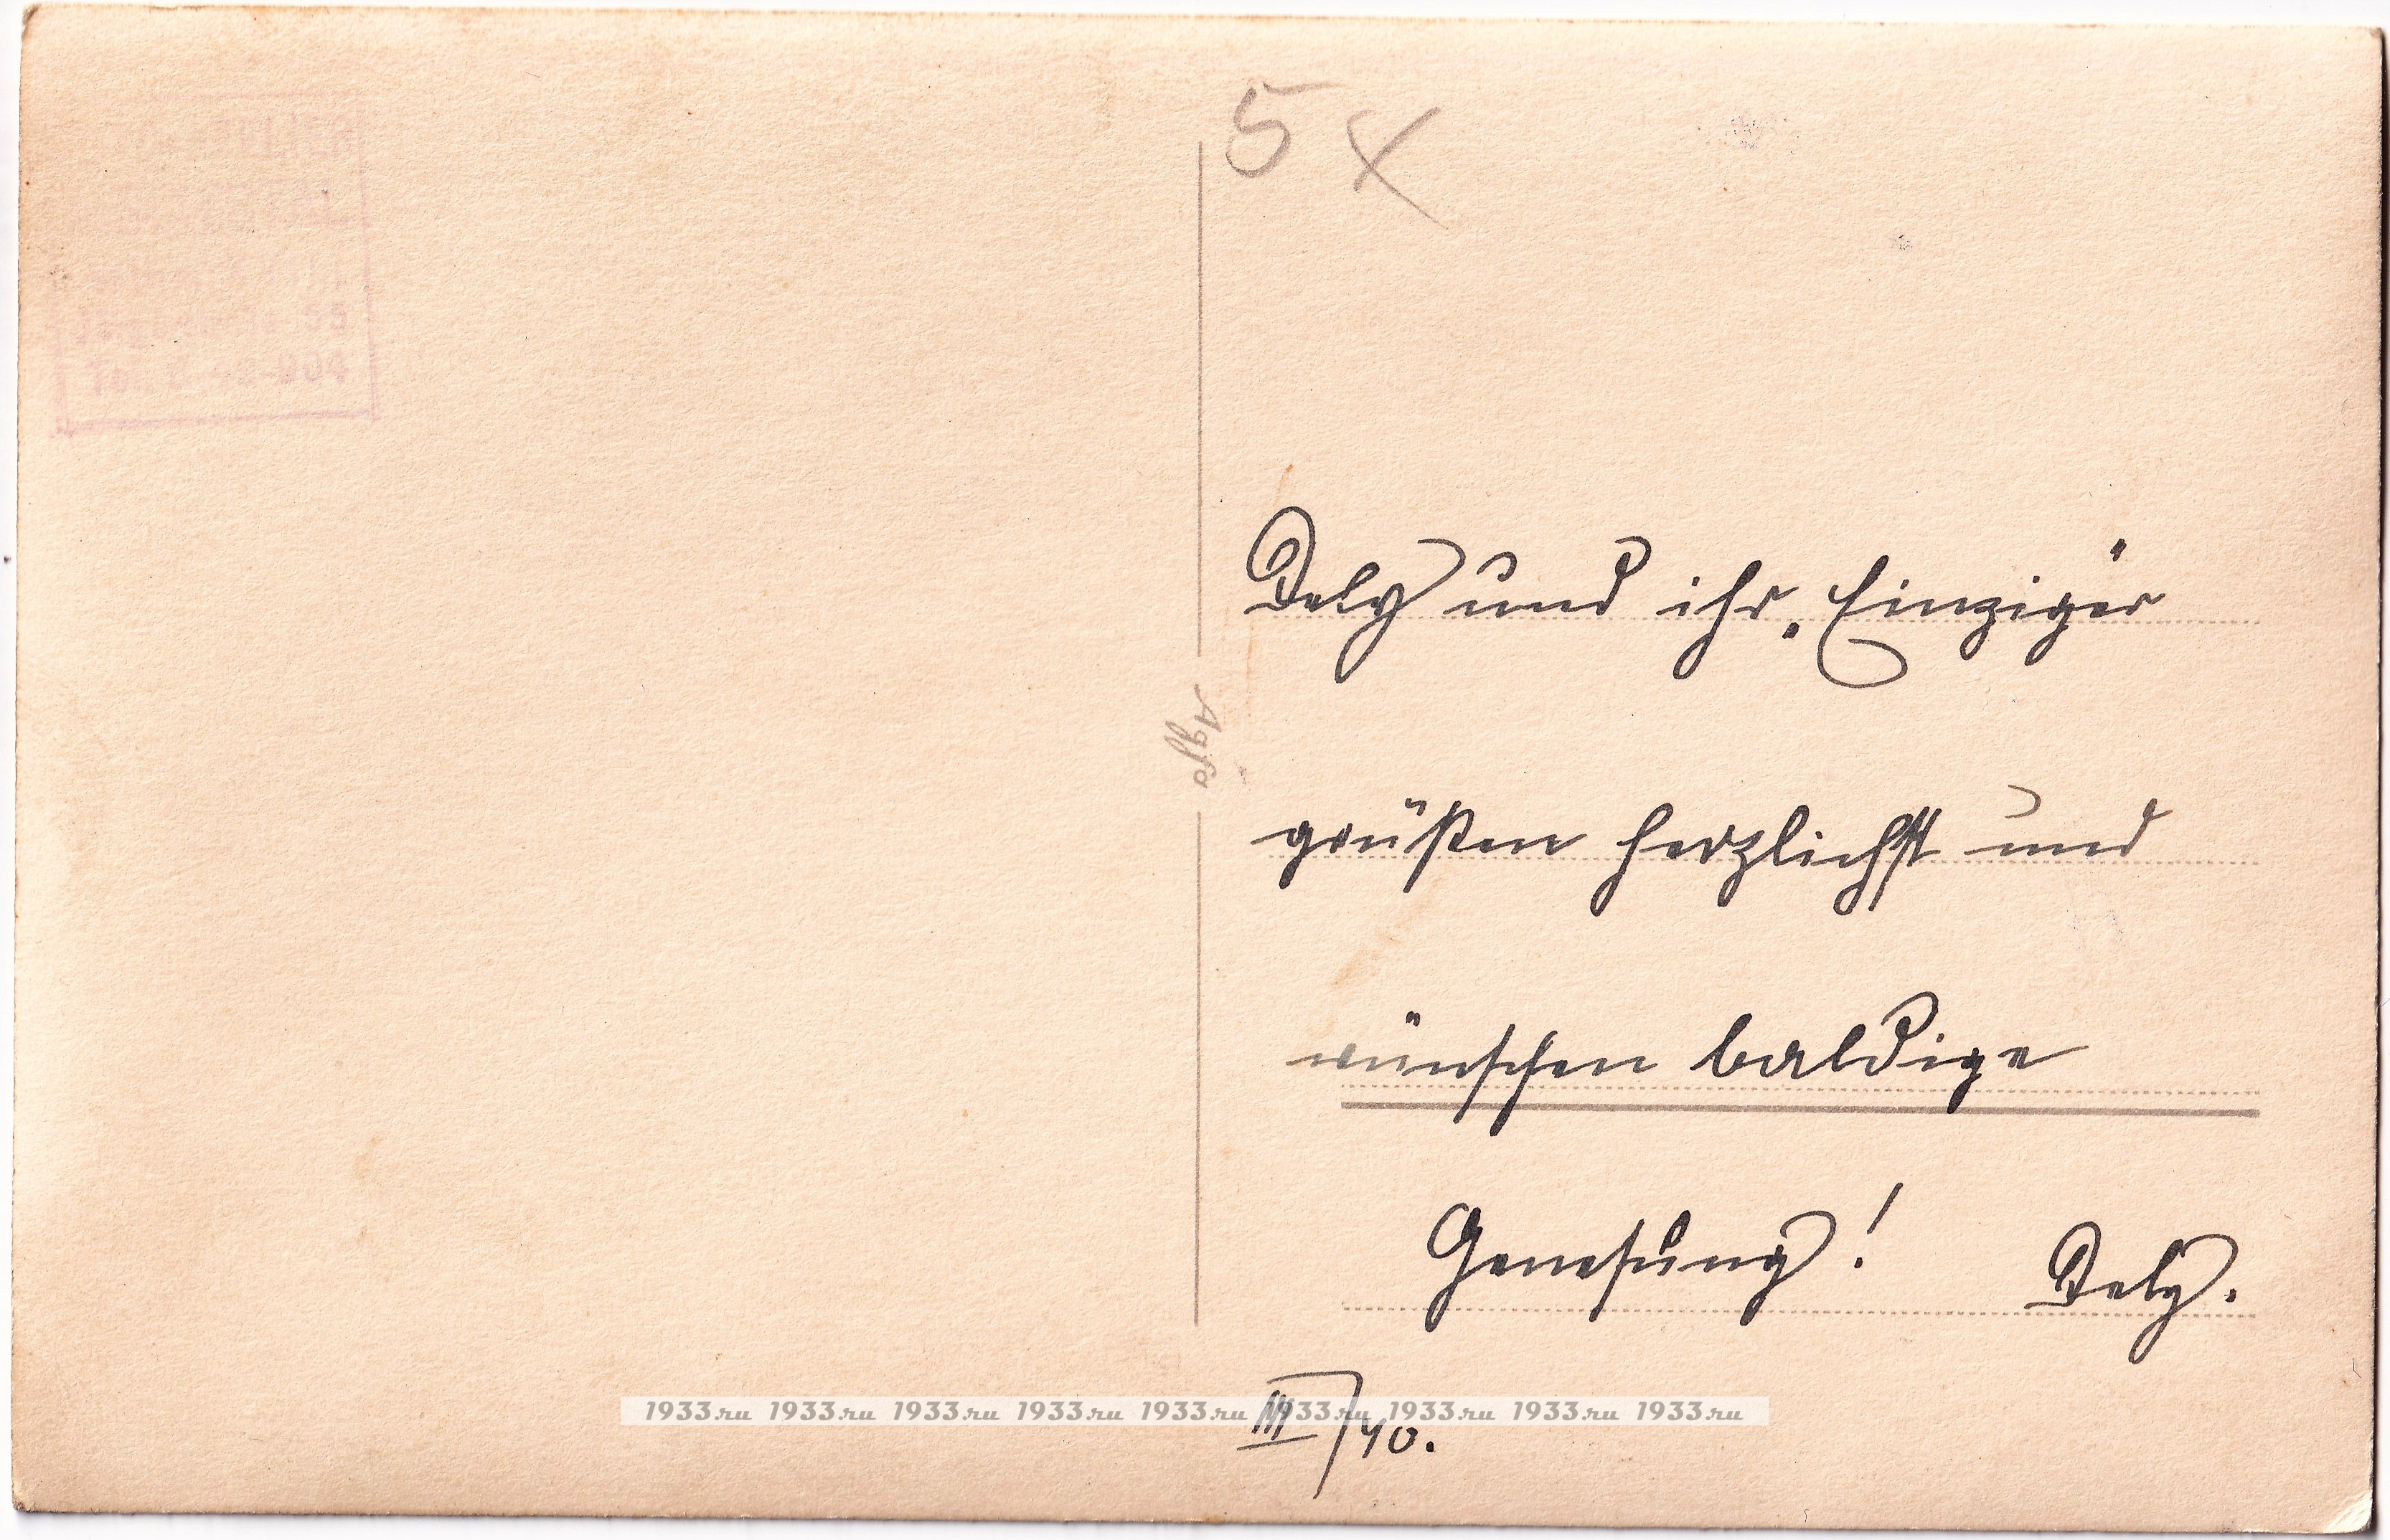 5 x
Dely und ihr „Einziger"
grüßen herzlichst und
wünschen baldige
Genesung!
Dely.
III/40.
Agfa
55
904
1933.ru 1933.ru 1933.ru 1933.ru 1933.ru 1933.ru 1933.ru 1933.ru 1933.ru